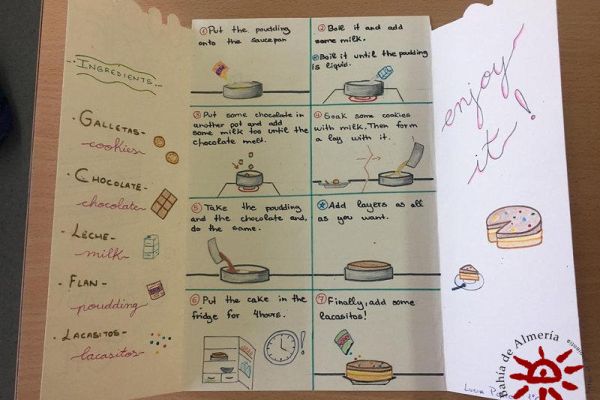 INGREDIENTS
GALLETAS-
cookies
CHOCOLATE-
chocolate
LECHE-
milk
FLAN-
poudding
LACASITOS-
lacasitos
① Put the poudding
onto the saucepan
② Boil it and add
some milk.
Boil it until the poudding
is liquid.
③ Put some chocolate in
another pot and add
some milk too until the
chocolate melt.
④ Soak some cookies
with milk. Then form
a lay with it.
⑤ Take the poudding
and the chocolate and,
do the same.
Add layers as all
as you want.
⑥ Put the cake in the
fridge for 4 hours.
⑦ Finally, add some
lacasitos!
enjoy
it!
Bahía de Almería